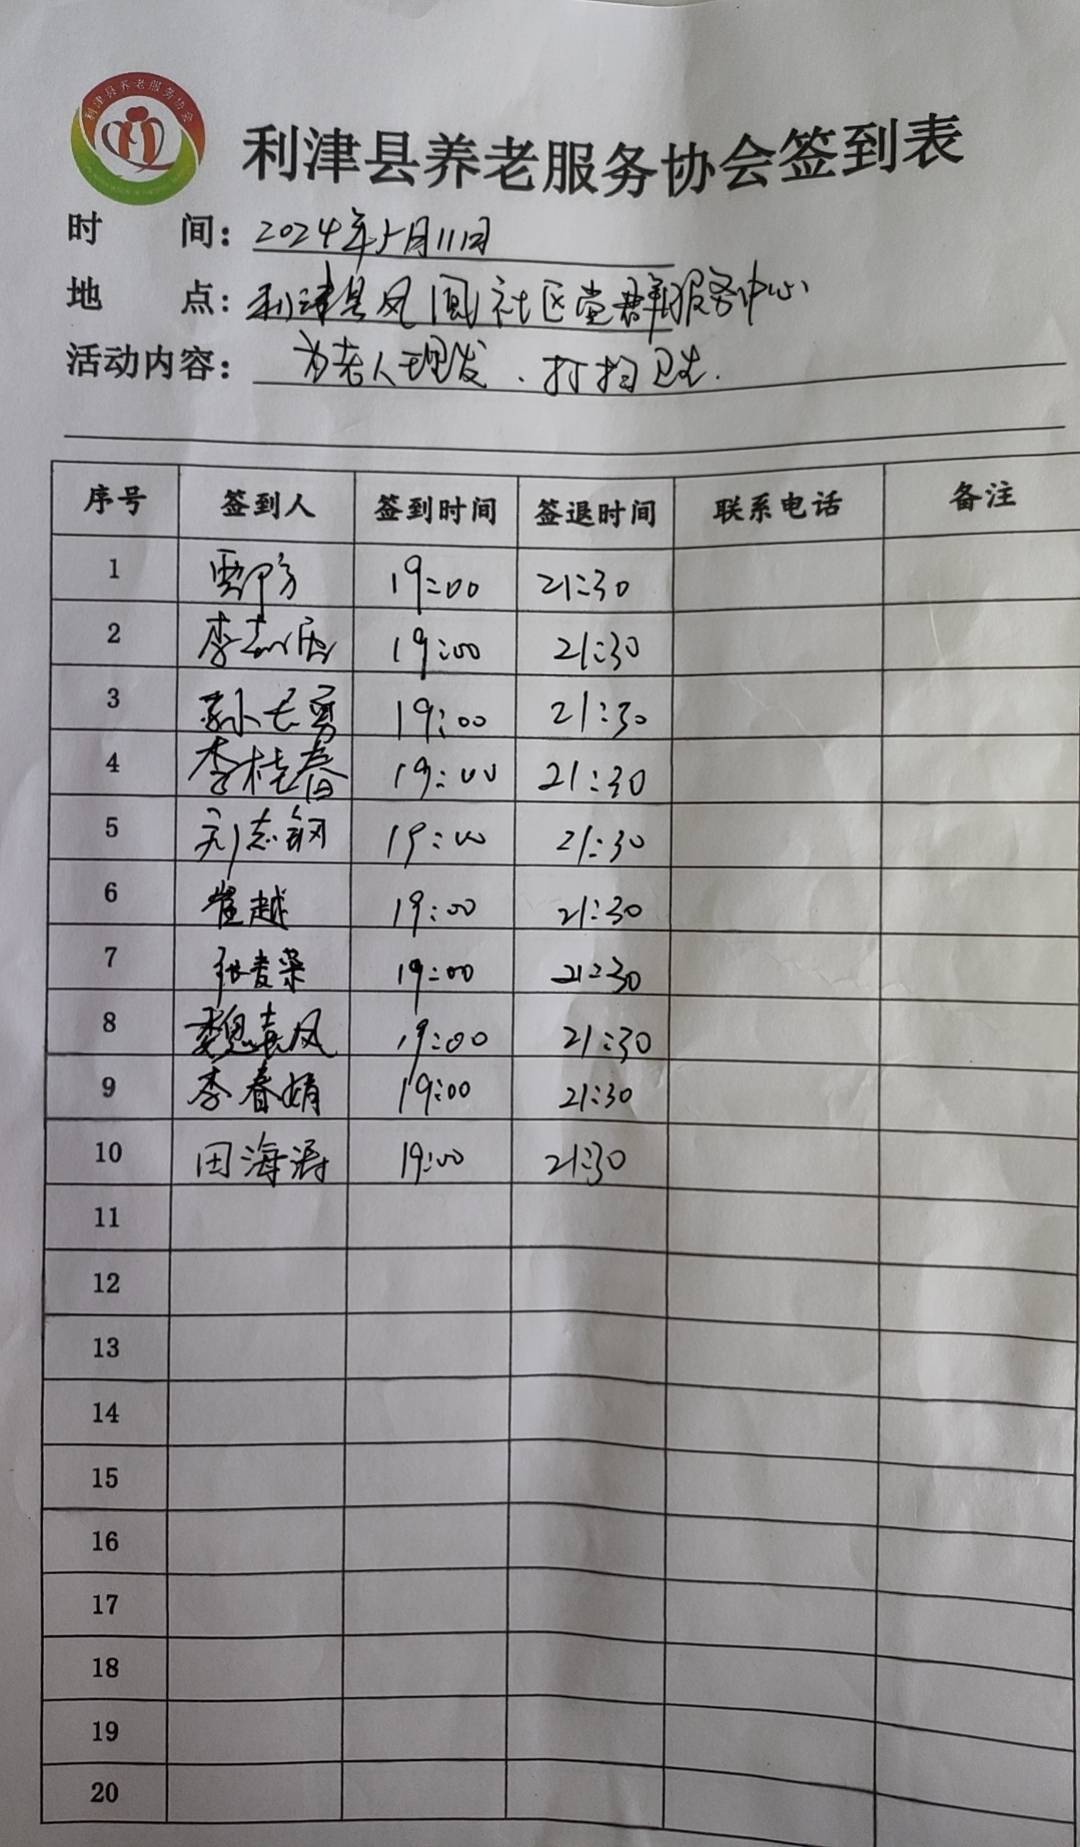 利津县养老服务协会
利津县养老服务协会签到表
时 间: 2024年5月11日
地 点: 利津县凤凰社区党群服务中心
活动内容: 为老人理发、打扫卫生.
序号 签到人 签到时间 签退时间 联系电话 备注
1 19:00 21:30
2 李 19:00 21:30
3 孙 勇 19:00 21:30
4 李桂春 19:00 21:30
5 刘志钢 19:00 21:30
6 崔越 19:00 21:30
7 张 19:00 21:30
8 魏春凤 19:00 21:30
9 李春娟 19:00 21:30
10 田海涛 19:00 21:30
11
12
13
14
15
16
17
18
19
20